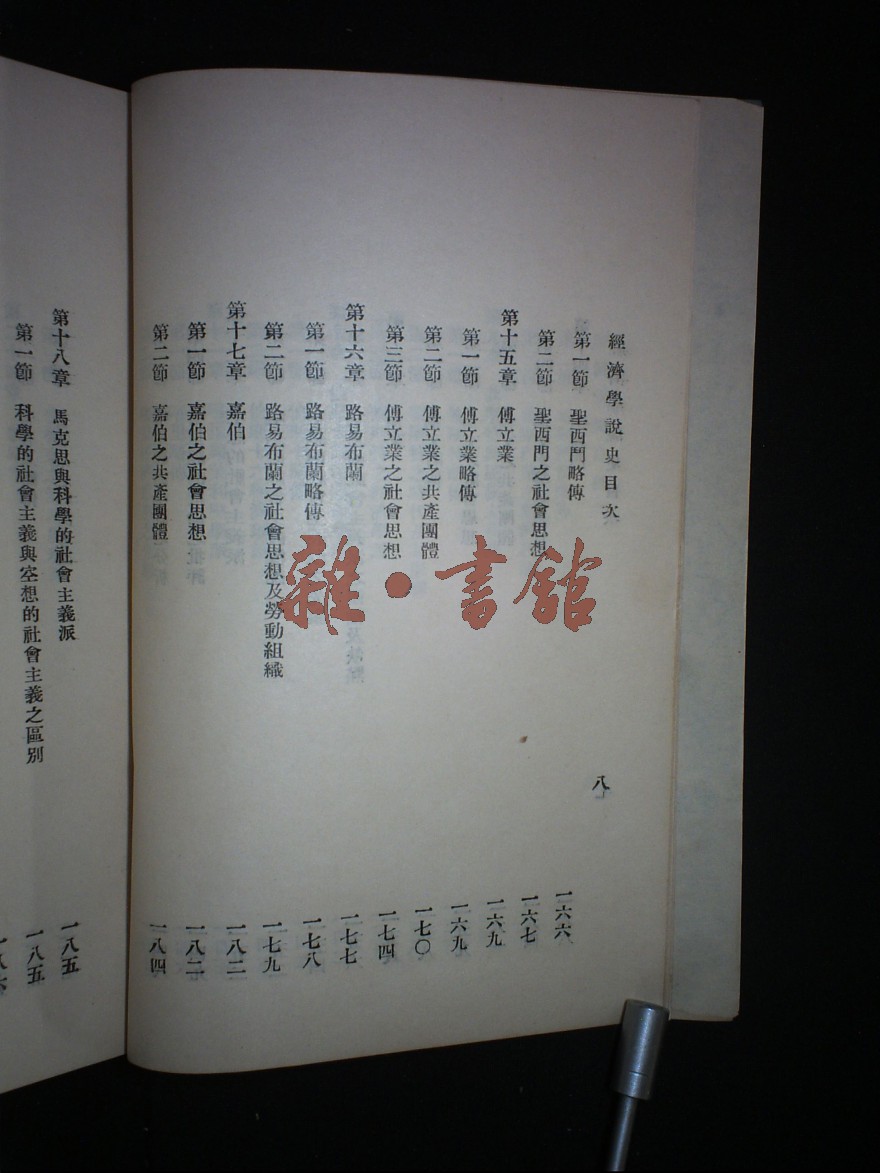 經濟學說史目次
八
第一節 聖西門略傳 一六六
第二節 聖西門之社會思想 一六七
第十五章 傅立業 一六九
第一節 傅立業略傳 一六九
第二節 傅立業之共產團體 一七〇
第三節 傅立業之社會思想 一七四
第十六章 路易布蘭 一七七
第一節 路易布蘭略傳 一七八
第二節 路易布蘭之社會思想及勞動組織 一七九
第十七章 嘉伯 一八二
第一節 嘉伯之社會思想 一八二
第二節 嘉伯之共產團體 一八四
第十八章 馬克思與科學的社會主義派 一八五
第一節 科學的社會主義與空想的社會主義之區別 一八五
雜·書館